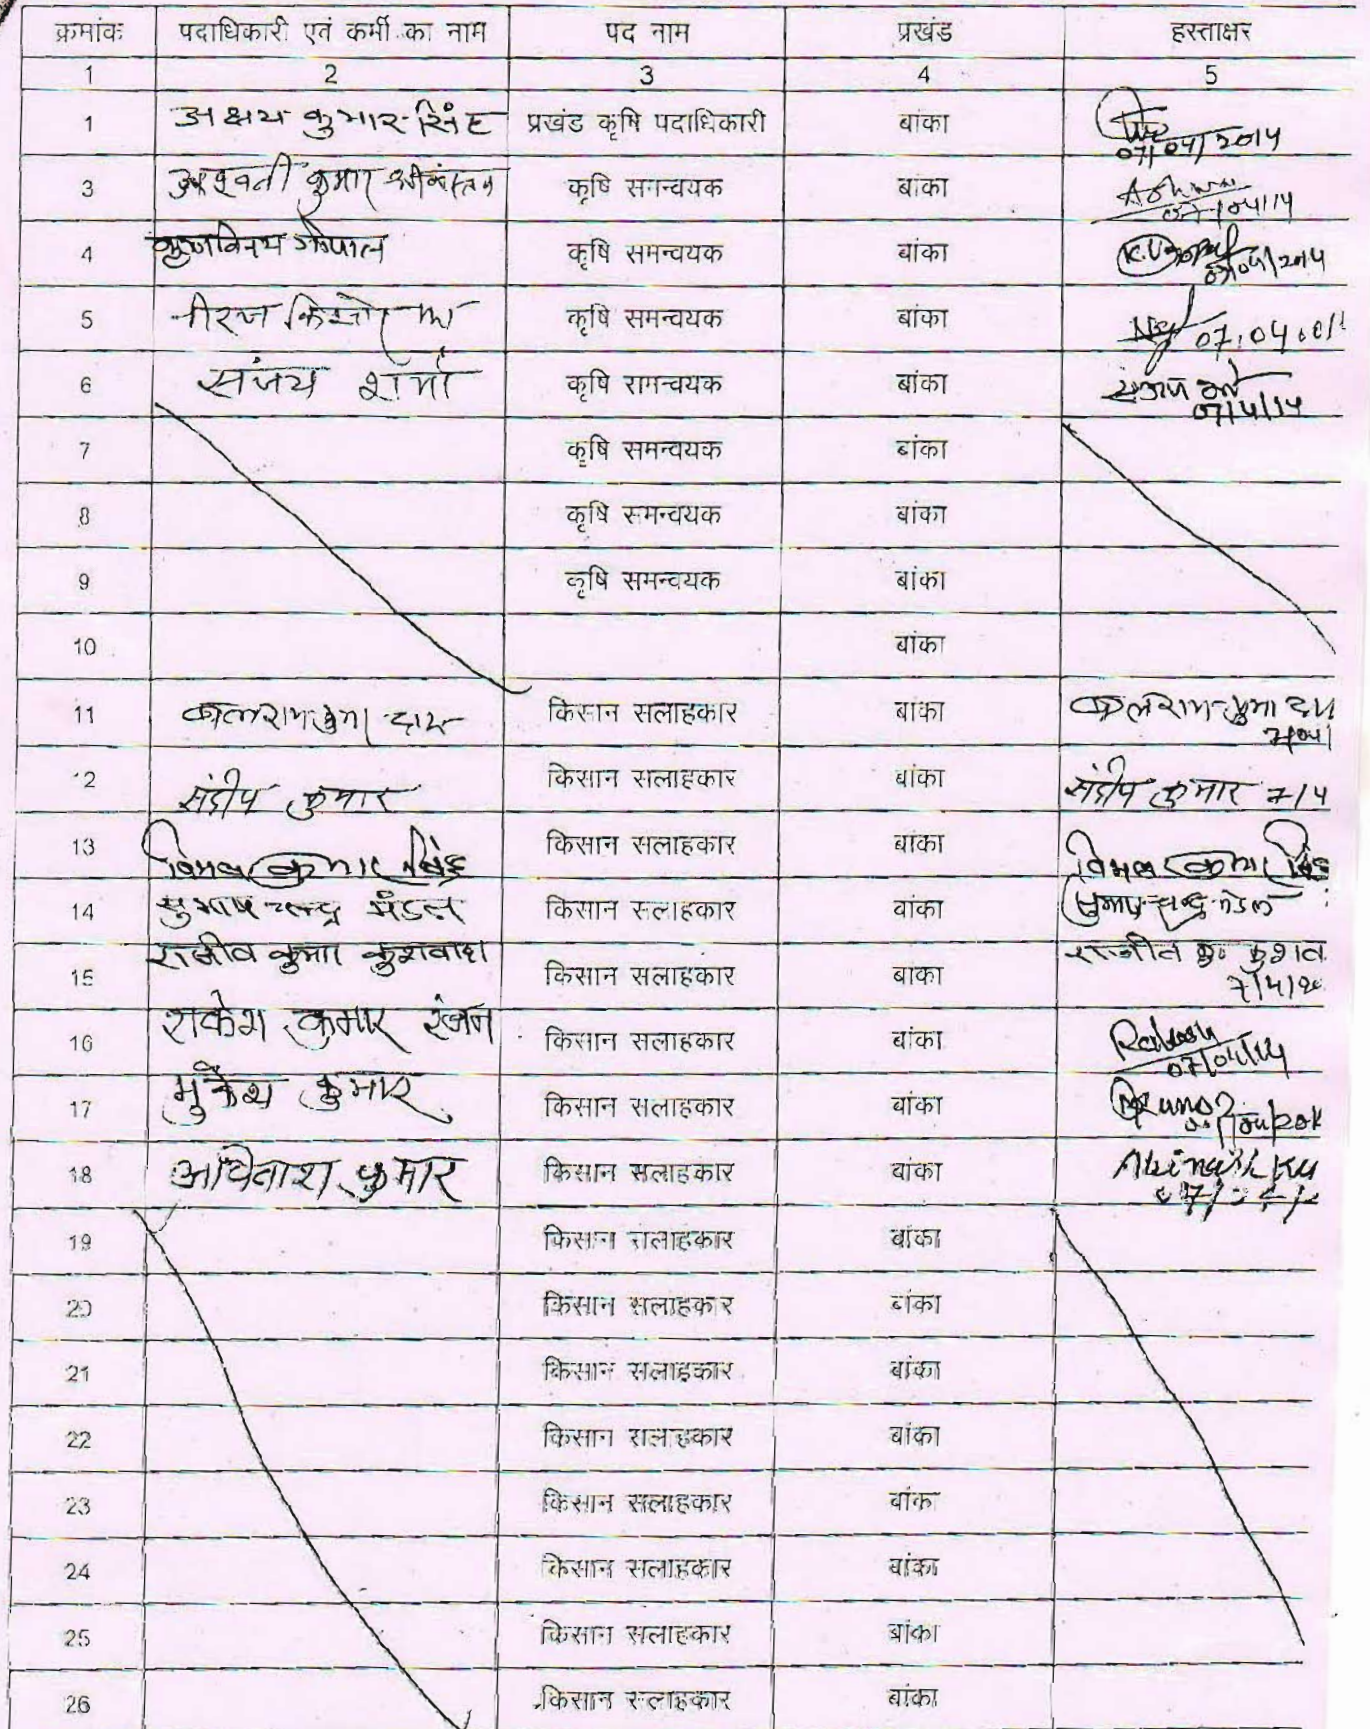 क्रमांक पदाधिकारी एवं कर्मी का नाम पद नाम प्रखंड हस्ताक्षर
1 2 3 4 5
1 अक्षय कुमार सिंह प्रखंड कृषि पदाधिकारी बांका 07/04/2014
3 अश्वनी कुमार श्रीवास्तव कृषि समन्वयक बांका 07/04/14
4 कृष्णविनय गोपाल कृषि समन्वयक बांका K.V.Gopal 07/04/2014
5 नीरज किशोर कृषि समन्वयक बांका 07.04.
6 संजय शर्मा कृषि समन्वयक बांका 07/4/14
7 कृषि समन्वयक बांका
8 कृषि समन्वयक बांका
9 कृषि समन्वयक बांका
10 बांका
11 दास किसान सलाहकार बांका
12 संदीप कुमार किसान सलाहकार बांका संदीप कुमार 7/4
13 विमल कुमार सिंह किसान सलाहकार बांका विमल कुमार सिंह
14 सुभाष चन्द्र मंडल किसान सलाहकार बांका सुभाष चन्द्र मंडल
15 राजीव कुमार कुशवाहा किसान सलाहकार बांका 7/4/
16 राकेश कुमार रंजन किसान सलाहकार बांका Rakesh 07/04/14
17 मुकेश कुमार किसान सलाहकार बांका
18 अविनाश कुमार किसान सलाहकार बांका Abinash Ku
19 किसान सलाहकार बांका
20 किसान सलाहकार बांका
21 किसान सलाहकार बांका
22 किसान सलाहकार बांका
23 किसान सलाहकार बांका
24 किसान सलाहकार बांका
25 किसान सलाहकार बांका
26 किसान सलाहकार बांका